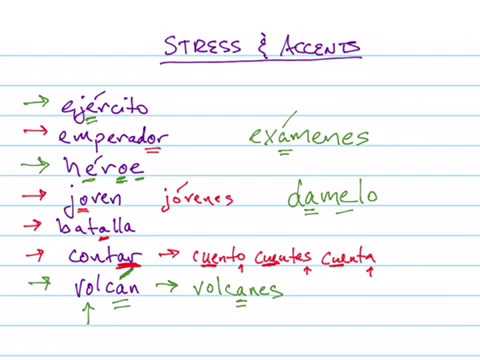 STRESS & ACCENTS
→ ejército
→ emperador exámenes
→ héroe
→ joven jóvenes damelo
→ batalla
→ contar → cuento cuentes cuenta
→ volcán → volcanes